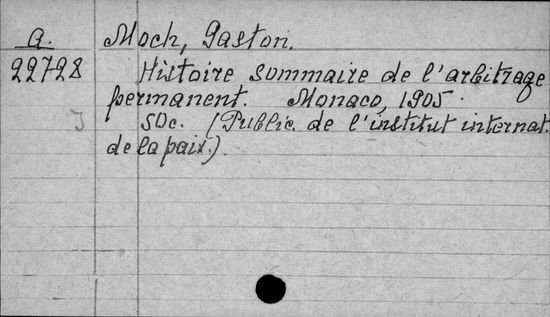 a. Moch, Gaston.
22728 Histoire sommaire de l'arbitrage
permanent. Monaco, 1905.
J SDc. (Public. de l'institut internat.
de la paix.).